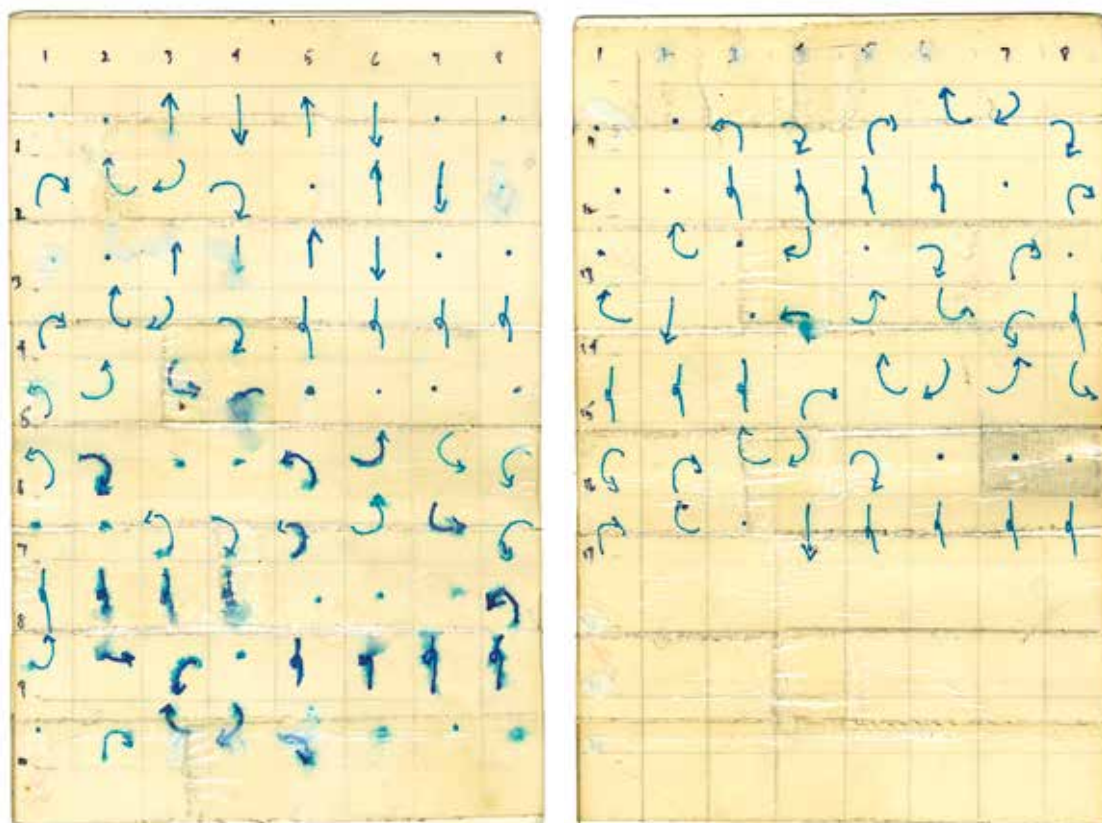 1 2 3 4 5 6 7 8
1
2
3
4
5
6
7
8
9
1 2 3 4 5 6 7 8
12
13
14
15
16
17